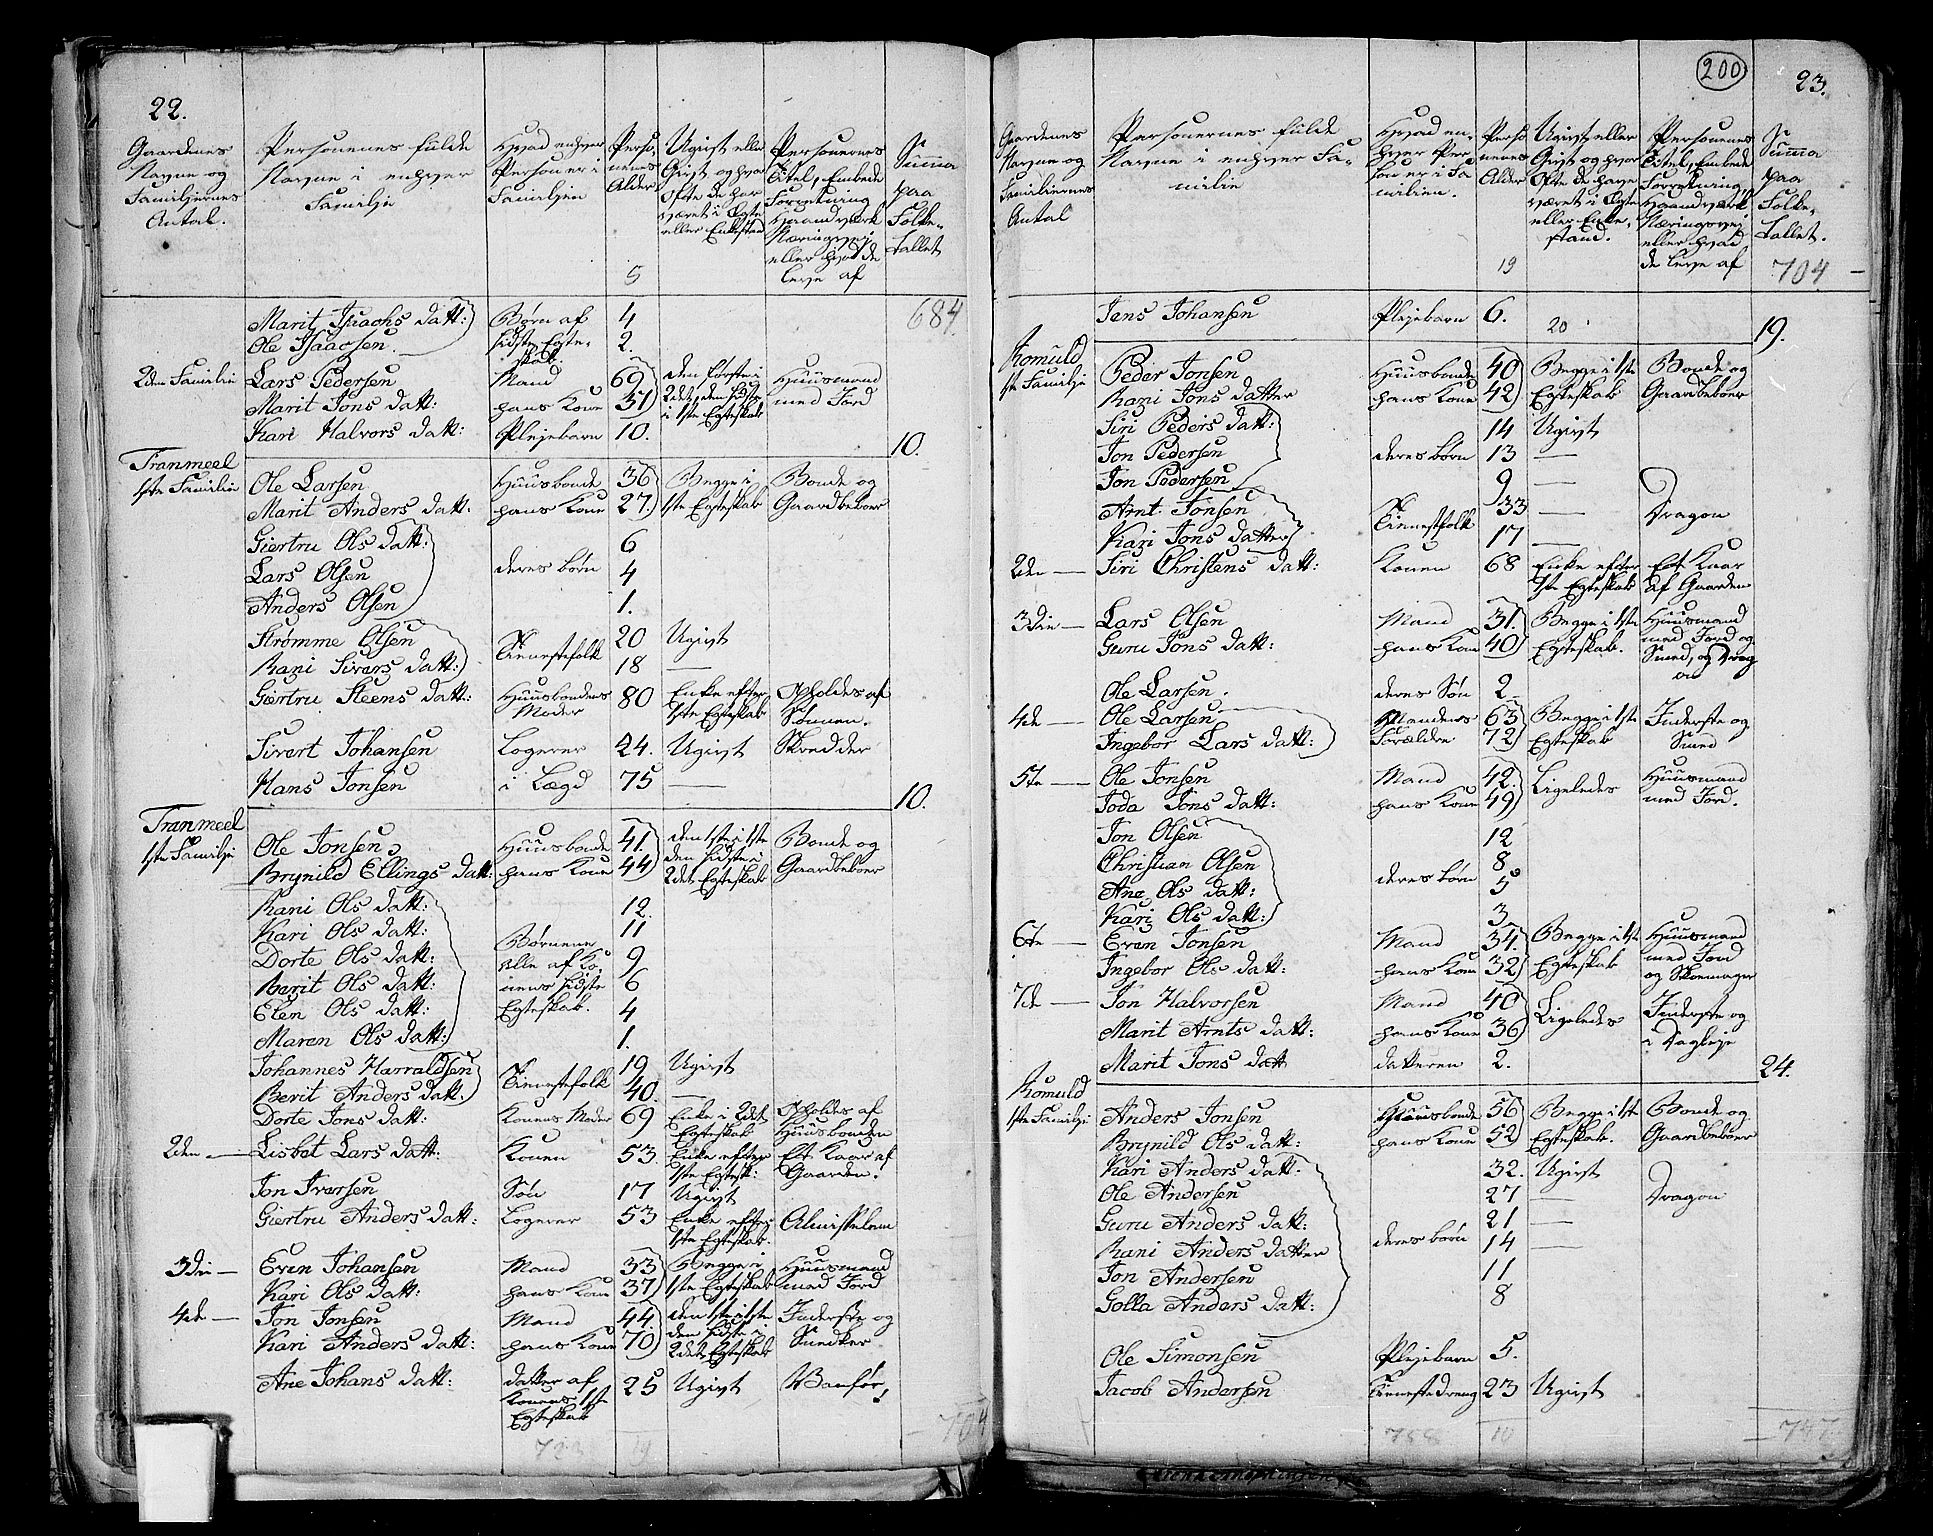 22.
Gaardenes Navne og Familjernes Antal.
Personenes fulde Navne i enhver Familje
Hvad enhver Person er i Familjen
Personenes Alder
Ugivt eller Givt og hvor Ofte de har været i Egte eller Enkestand
Personernes Titel, Embede Forretning Haandværk Næringsvej eller hvad de leve af
Summa paa Folketallet
5
684
Marit Isaachs datt: Børn af sidste Egteskab. 4
Ole Isaacsen. 2.
2den Familie Lars Pedersen Mand 69 den første i 2det, den sidste i 1ste Egteskab Huusmand med Jord
Marit Jons datt: hans Kone 51
Kari Halvors datt: Plejebarn 10.
10.
Tranmeel
1ste Familie Ole Larsen Huusbonde 36 Begge i 1ste Egteskab Bonde og Gaardbeboer
Marit Anders datt. hans Kone 27.
Giertru Ols datt: 6
Lars Olsen deres børn 4
Anders Olsen 1.
Strømme Olsen Tienestefolk 20 Ugivt
Rani Sivers datt: 18 —
Giertru Steens datt: Huusbondens Moder 80 Enke efter 1ste Egteskab Opholdes af Sønnen.
Sivert Johansen Logerer 24. Ugivt Skredder
Hans Jonsen i Lægd 75 —
10.
Tranmeel
1ste Familje Ole Jonsen Huusbonde 41. den 1ste i 1ste den sidste i 2det Egteskab Bonde og Gaardbeboer
Brynild Ellings datt: hans Kone 44
Rani Ols datt: 12.
Kari Ols datt: 11
Dorte Ols datt: Børnene alle af Konens sidste Egteskab. 9
Berit Ols datt: 6
Elen Ols datt: 4
Maren Ols datt: 1.
Johannes Harraldsen Tienestefolk 19 Ugivt
Berit Anders datt. 40. —
Dorte Jons datt: Konens Moder 69 Enke i 2det Egteskab Opholdes af Huusbonden
2den — Lisbet Lars datt: Konen 53. Enke efter 1ste Egtesk: Et Kaar af Gaarden.
Jon Iversen Søn 17 Ugivt
Giertru Anders datt: Logerer 53 Enke efter 1ste Egteskab. Almisselem
3die — Even Johansen Mand 33 Begge i 1ste Egteskab Huusmand med Jord
Kari Ols datt: hans Kone 37
4de — Jon Jonsen Mand 44. den 1ste i 1ste den sidste i 2det Egteskab Inderste og Snedker
Kari Anders datt: hans Kone 70
Ane Johans datt: datter af Konens 1ste Egteskab 25 Ugivt Vanfør.
723 19 704
200
23.
Gaardenes Navne og Familiernes Antal
Personernes fulde Navne i enhver Familie
Hvad enhver Person er i Familien.
Personenes Alder
Ugivt eller Givt og hvor Ofte de have været i Egte eller Enkestand.
Personenes Titel, Embede Forretning, Haandværk Næringsvej eller hvad de leve af
Summa paa Folketallet.
19 704
Jens Johansen Plejebarn 6. 20
19.
Romuld
1ste Familje Peder Jonsen Huusbonde 40 Begge i 1ste Egteskab Bonde og Gaardbeboer
Rani Jons datter hans Kone 42
Siri Peders datt: 14 Ugivt
Jon Pedersen deres børn 13 —
Jon Pedersen 9 —
Arnt Jonsen Tienestfolk 33 — Dragon
Kari Jons datter 17 —
2de — Siri Christens datt: Konen 68 Enke efter 1ste Egteskab Et Kaar af Gaarden
3die — Lars Olsen Mand 31. Begge i 1ste Egteskab. Huusmand med Jord og Smed, og Dragon
Guru Jons datt: hans Kone 40
Ole Larsen. deres Søn 2
4de — Ole Larsen Mandens Forældre 63 Begge i 1ste Egteskab Inderste og Smed
Ingebor Lars datt: 72
5te — Ole Jonsen Mand 42. Ligeledes Huusmand med Jord.
Joda Jons datt: hans Kone 49
Jon Olsen 12
Christian Olsen 8
Ane Ols datt: deres børn 5
Kari Ols datt: 3
6te — Even Jonsen Mand 34. Begge i 1st Egteskab Huusmand med Jord og Skoemager
Ingebor Ols datt: hans Kone 32
7de — Jon Halvorsen Mand 40 Ligeledes Inderste og i Dagleje
Marit Arnts datt: hans Kone 36
Marit Jons datt datteren 2.
24.
Romuld
1ste Familje Anders Jonsen Huusbonde 56 Begge i 1ste Egteskab. Bonde og Gaardbeboer
Brynild Ols datt: hans Kone 52
Kari Anders datt: 32. Ugivt
Ole Andersen 27 — Dragon
Guru Anders datt: 21 —
Rani Anders datter deres børn 14 —
Jon Andersen 11
Golla Anders datt: 8
Ole Simonsen Plejebarn 5.
Jacob Andersen Tienestedreng 23 Ugivt
788 10 747